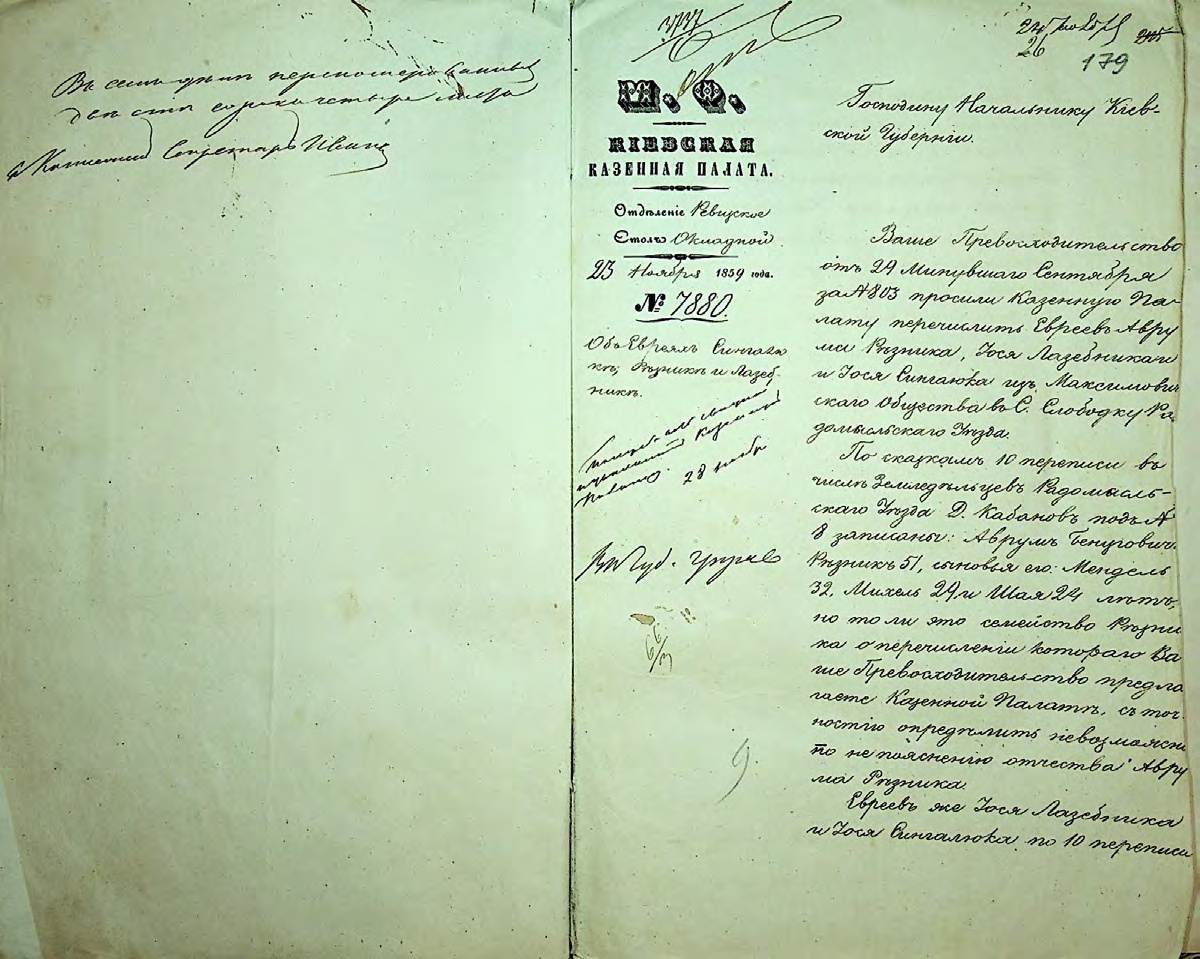 Въ семъ дѣлѣ перенумерованныхъ
двѣсти сорокъ четыре листа
Секретарь
3737
26
179
М. Ф.
КІЕВСКАЯ
КАЗЕННАЯ ПАЛАТА.
Отдѣленіе Ревизское
Столъ Окладной
23 Ноября 1859 года.
№ 7880.
Объ Евреяхъ Сингалю
кѣ, Рѣзникѣ и Лазеб-
никѣ.
28 ноября
66/3
9.
Господину Начальнику Кіев-
ской Губерніи.
Ваше Превосходительство
отъ 29 Минувшаго Сентября
за № 803 просили Казенную Па-
лату перечислить Евреевъ Авру
ма Рѣзника, Іося Лазебника и
и Іося Сингалюка изъ Максимович
скаго Общества въ С. Слободку Ра-
домысльскаго Уѣзда.
По сказкамъ 10 переписи въ
числѣ Земледѣльцевъ Радомысль-
скаго Уѣзда Д. Кабановъ подъ №
8 записаны: Аврумъ
Рѣзникъ 51, сыновья его: Мендель
32, Михель 29 и Шая 24 лѣтъ,
но то ли это семейство Рѣзни
ка о перечисленіи котораго Ва
ше Превосходительство предла
гаете Казенной Палатѣ, съ точ-
ностію опредѣлить невозможно
по не поясненію отчества Авру
ма Рѣзника.
Евреевъ же Іося Лазебника
и Іося Сингалюка по 10 переписи